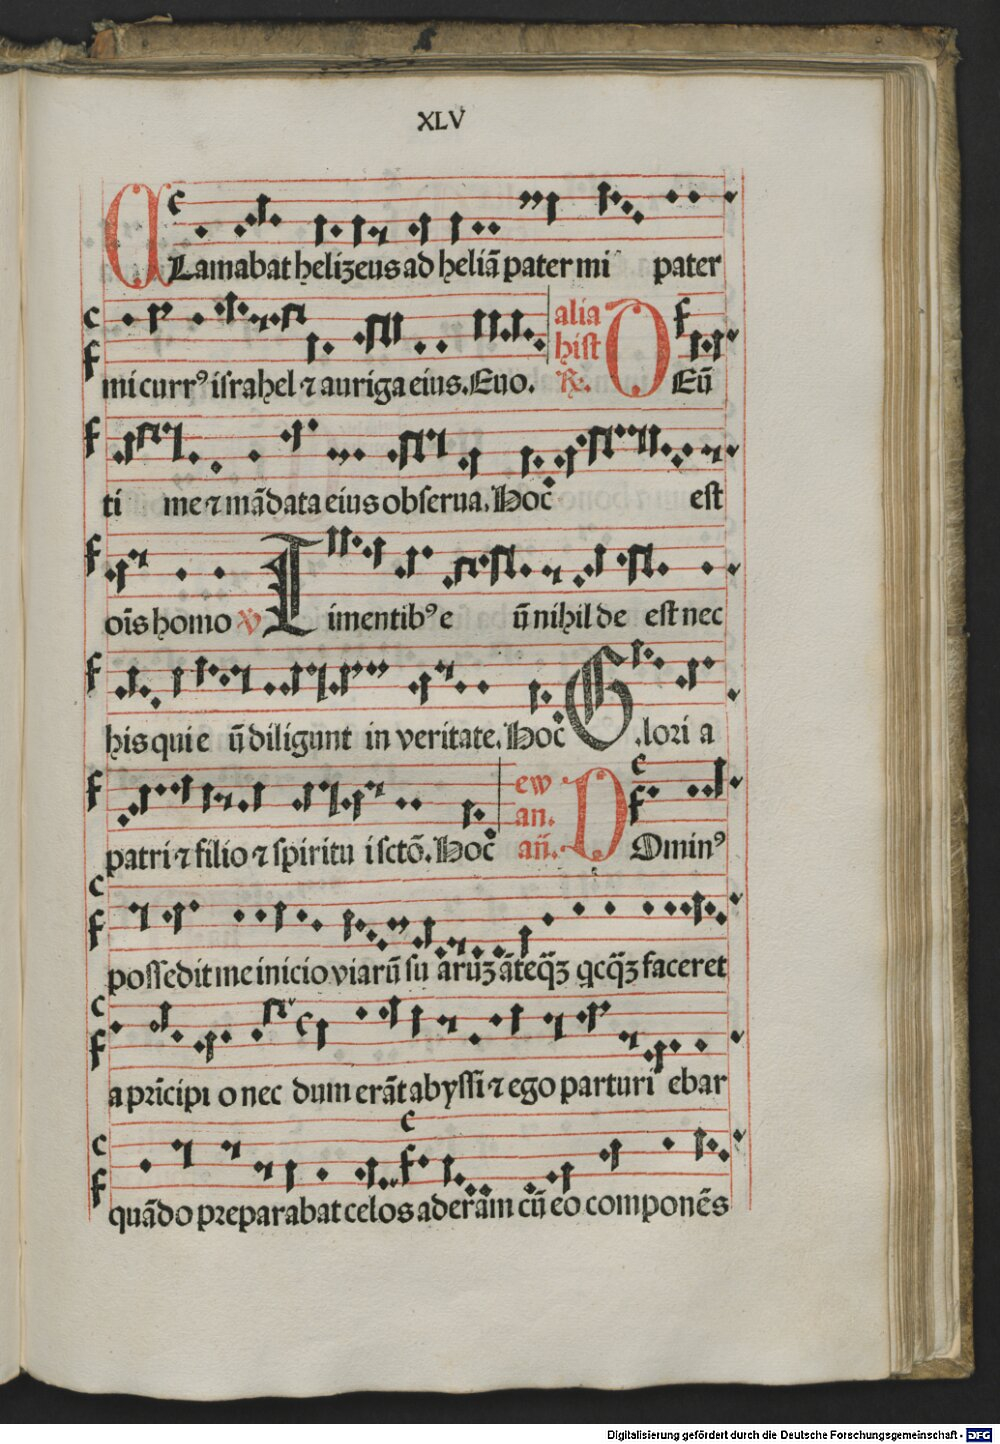 XLV
CLamabat helizeus ad heliā pater mi pater
mi currꝰ israhel ⁊ auriga eius. Euo. alia hist R. DEū
ti me ⁊ mādata eius obserua. Hoc est
oīs homo V Timentibꝰ e ū nihil de est nec
his qui e ū diligunt in veritate. Hoc Glori a
patri ⁊ filio ⁊ spiritu i sctō. Hoc ew an. añ. DOminꝰ
possedit me inicio viarū su aruʒ āteq̄ʒ qcq̄ʒ faceret
a prīcipi o nec dum erāt abyssi ⁊ ego parturi ebar
quādo preparabat celos aderam cū eo componēs
Digitalisierung gefördert durch die Deutsche Forschungsgemeinschaft - DFG